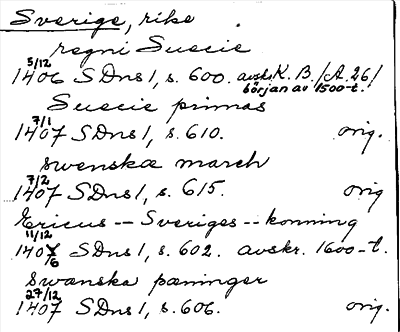 Sverige, rike
regni Suecie
5/12
1406 SDns 1, s. 600. avskr. K. B. /A. 26/
början av 1500-t.
Suecie primas
7/1
1407 SDns 1, s. 610. orig.
swenskæ march
7/2
1407 SDns 1, s. 615. orig
Ericus -- Sveriges -- konning
11/12
1406 SDns 1, s. 602. avskr. 1600-t.
swænska pæninger
27/12
1407 SDns 1, s. 606. orig.